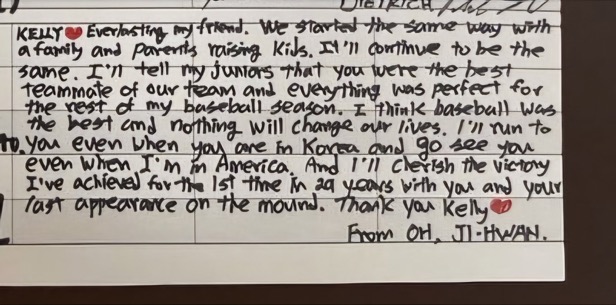 DIETRICH
KELLY❤ Everlasting my friend. We started the same way with
a family and parents raising kids. I'll continue to be the
same. I'll tell my juniors that you were the best
teammate of our team and everything was perfect for
the rest of my baseball season. I think baseball was
the best and nothing will change our lives. I'll run to
to. you even when you are in Korea and go see you
even when I'm in America. And I'll cherish the victory
I've achieved for the 1st time in 29 years with you and your
last appearance on the mound. Thank you Kelly❤
From OH, JI-HWAN.